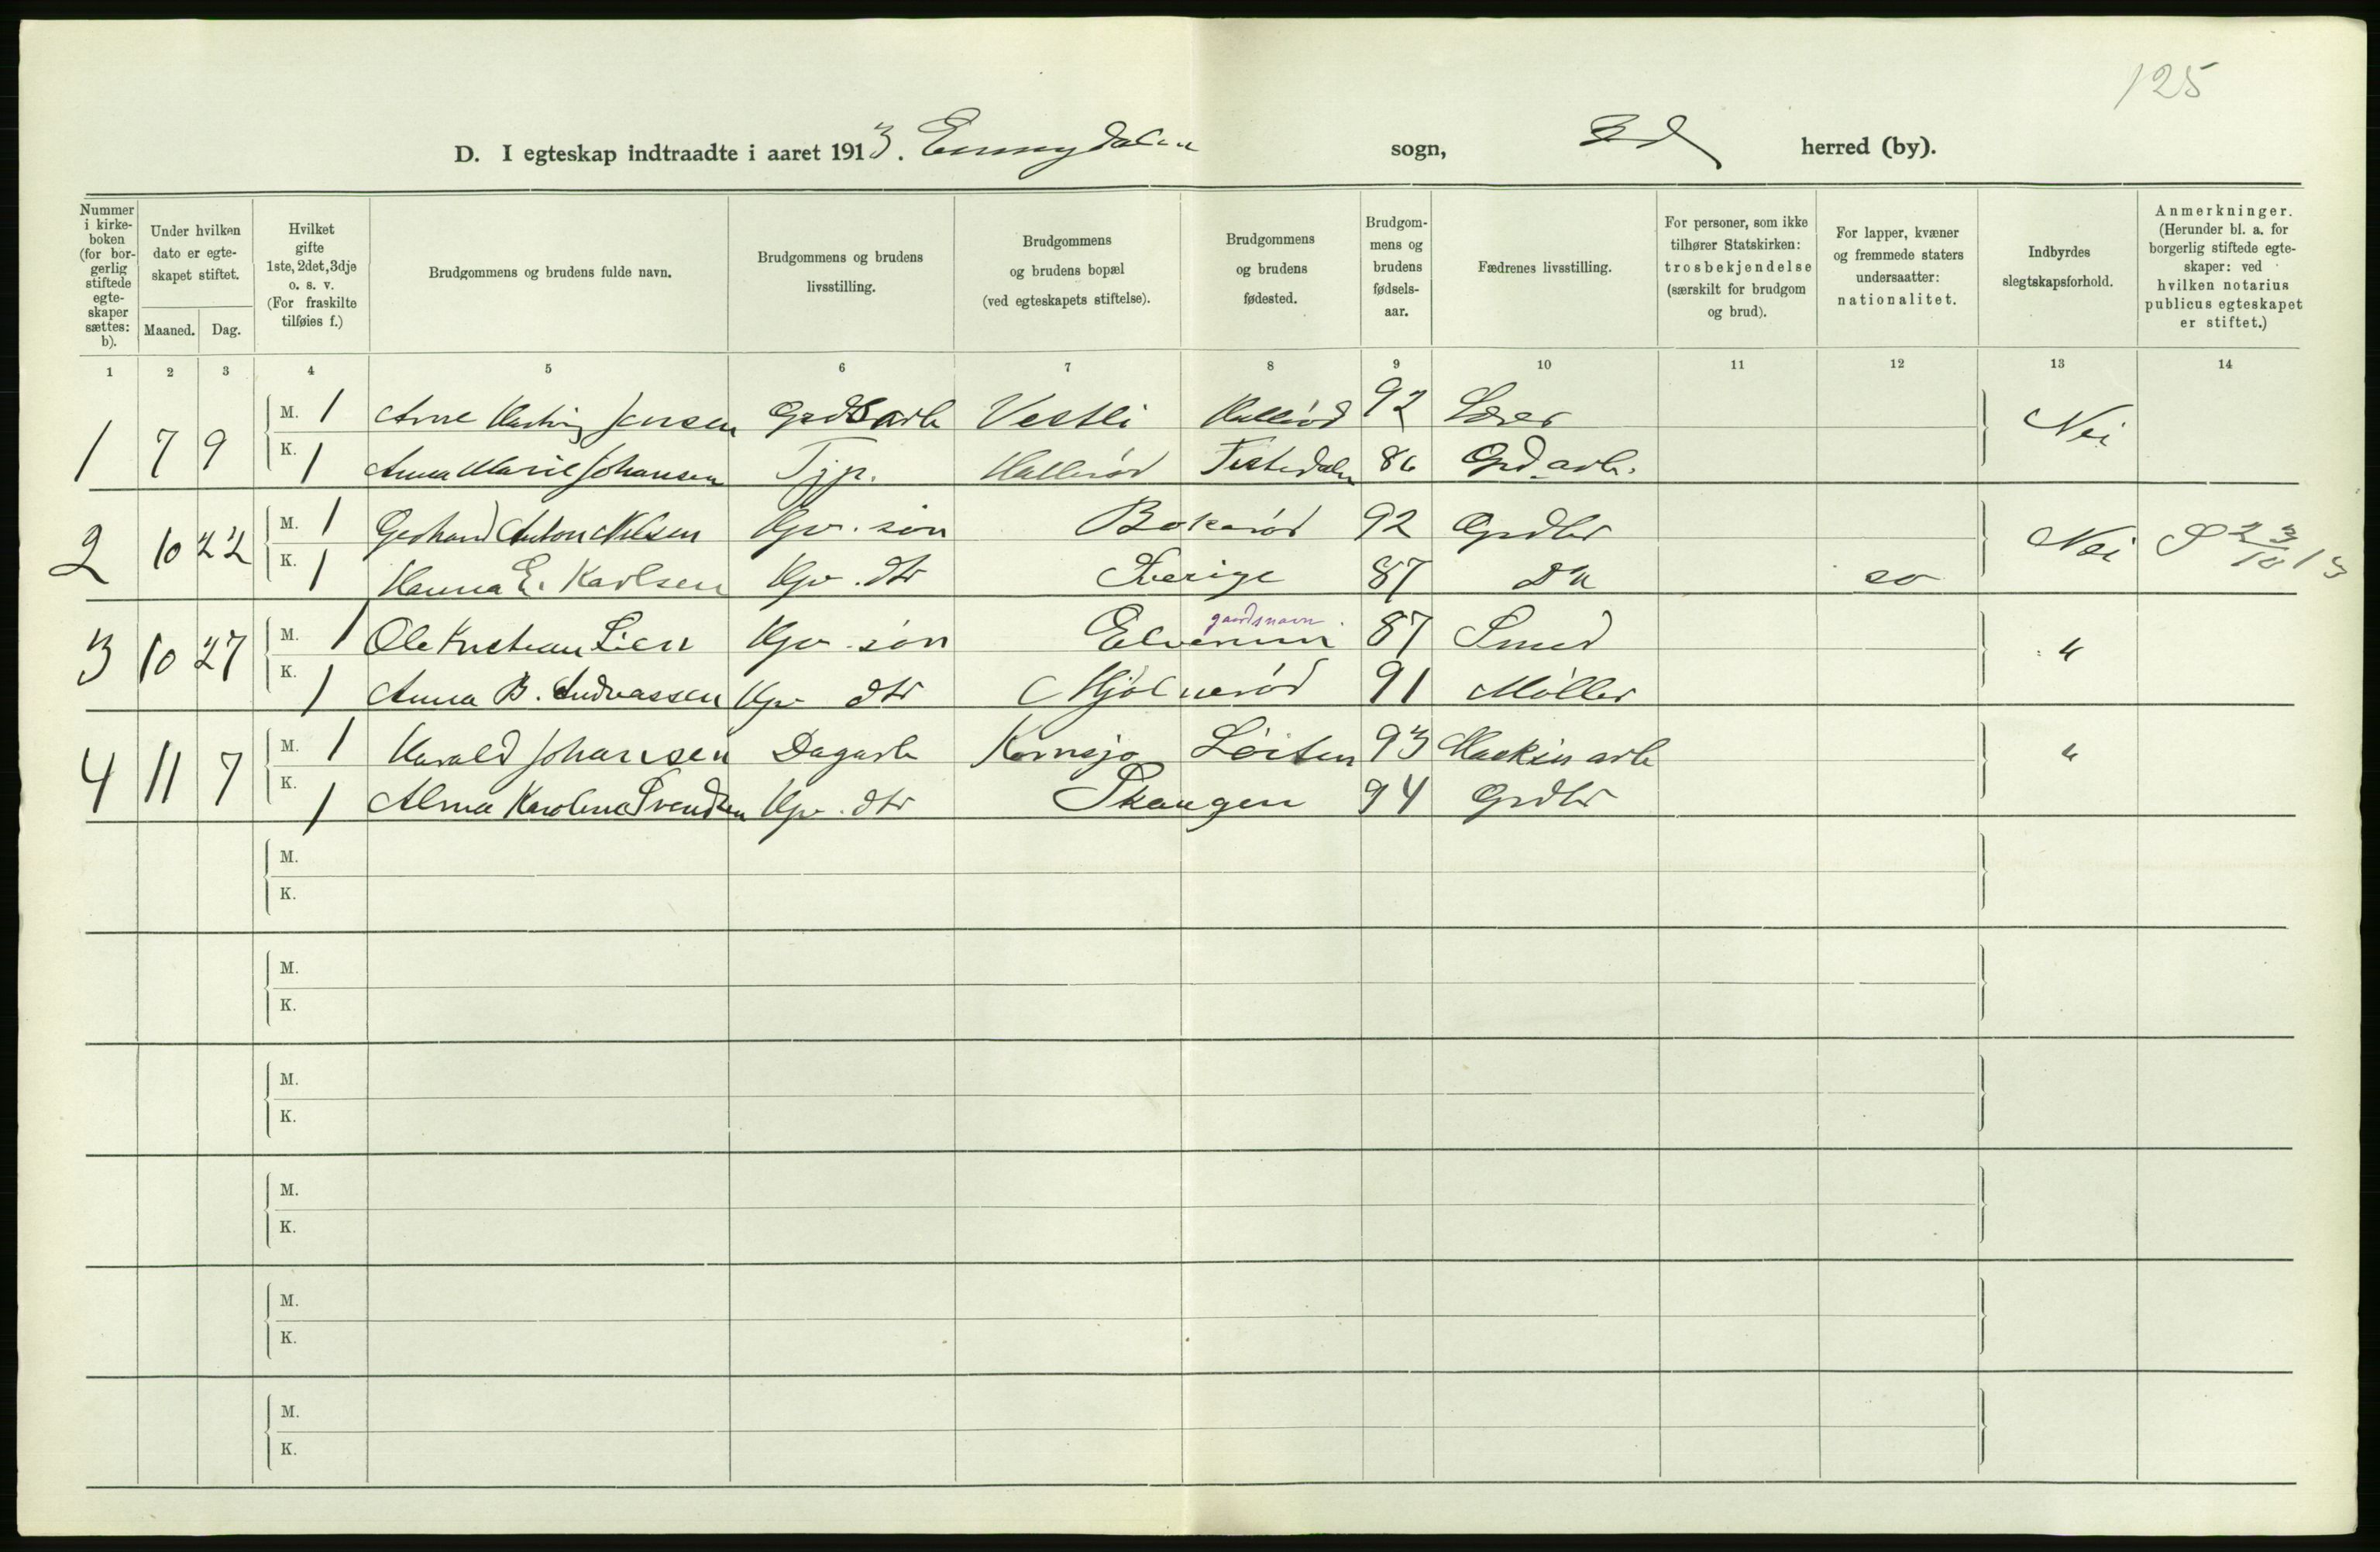 125
D. I egteskap indtraadte i aaret 1913. Enningdalen sogn, Id herred (by).
Nummer i kirke-boken (for bor-gerlig stiftede egte-skaper sættes: b).
Under hvilken dato er egte-skapet stiftet.
Maaned. Dag.
Hvilket gifte 1ste, 2det, 3dje o. s. v. (For fraskilte tilføies f.)
Brudgommens og brudens fulde navn.
Brudgommens og brudens livsstilling.
Brudgommens og brudens bopæl (ved egteskapets stiftelse).
Brudgommens og brudens fødested.
Brudgom-mens og brudens fødsels-aar.
Fædrenes livsstilling.
For personer, som ikke tilhører Statskirken: trosbekjendelse (særskilt for brudgom og brud).
For lapper, kvæner og fremmede staters undersaatter: nationalitet.
Indbyrdes slegtskapsforhold.
Anmerkninger. (Herunder bl. a. for borgerlig stiftede egte-skaper: ved hvilken notarius publicus egteskapet er stiftet.)
1 2 3 4 5 6 7 8 9 10 11 12 13 14
1 7 9 M. 1 Arne Jensen Grdsarb Vestli Hallerød 92 Nei
K. 1 Anna Marie Johansen Tjp. Hallerød Tistedalen 86 Grd.arb.
2 10 22 M. 1 Gerhard Anton Nilsen Gv. søn Bokerød 92 Grdbr Nei S 23/10 13
K. 1 Hanna E. Karlsen Gv. dtr Sverige 87 sv
gaardsnavn
3 10 27 M. 1 Ole Kristian Lien Gv. søn Elverum 87 Smed "
K. 1 Anna B. Andreassen Gv dtr Mjølnerød 91 Møller
4 11 7 M. 1 Harald Johansen Dagarb Kornsjø Løiten 93 Maskin arb "
K. 1 Alma Karoline Svendsen Gv. dtr Skaugen 94 Grdbr
M.
K.
M.
K.
M.
K.
M.
K.
M.
K.
M.
K.